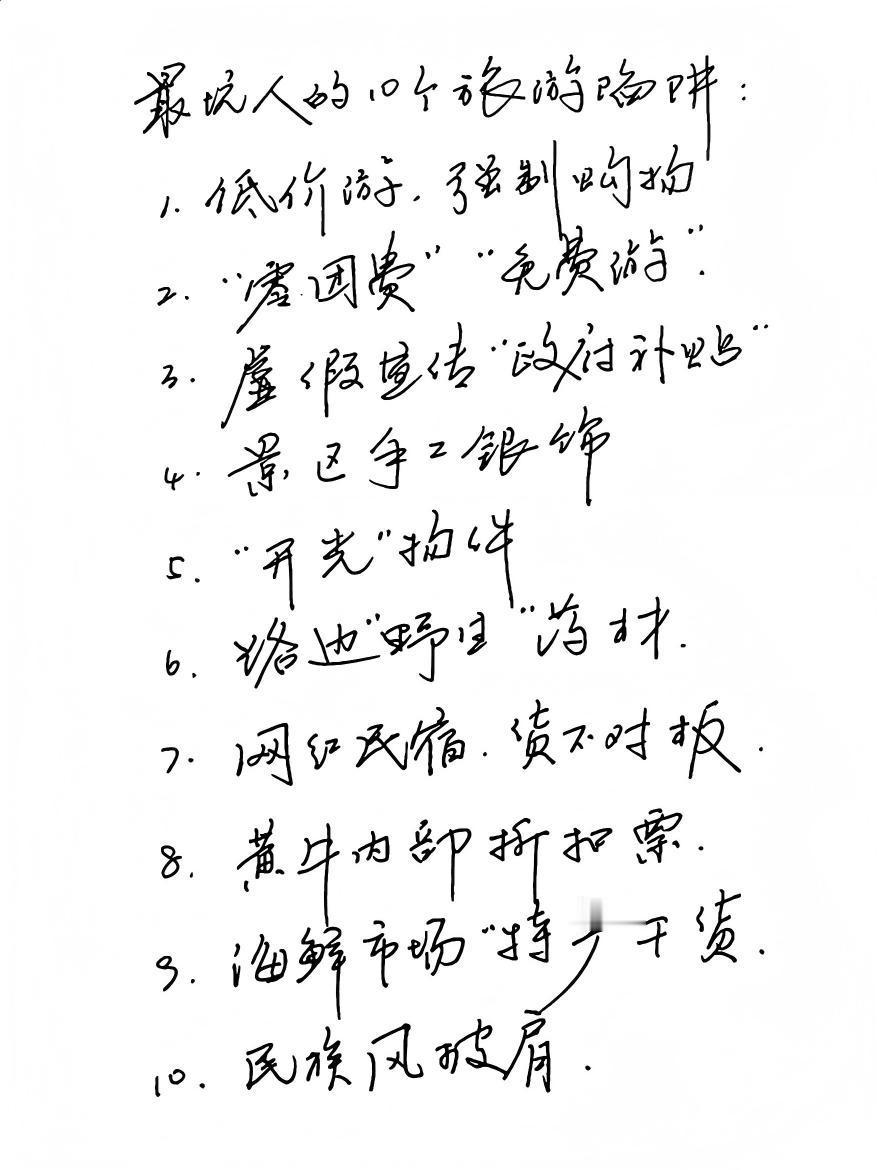 最坑人的10个旅游陷阱:
1. 低价游.强制购物
2. "零团费" "免费游".
3. 虚假宣传"政府补贴"
4. 景区手工银饰
5. "开光"物件
6. 路边"野生"药材.
7. 网红民宿.货不对板.
8. 黄牛内部折扣票.
9. 海鲜市场"特产干货.
10. 民族风披肩.